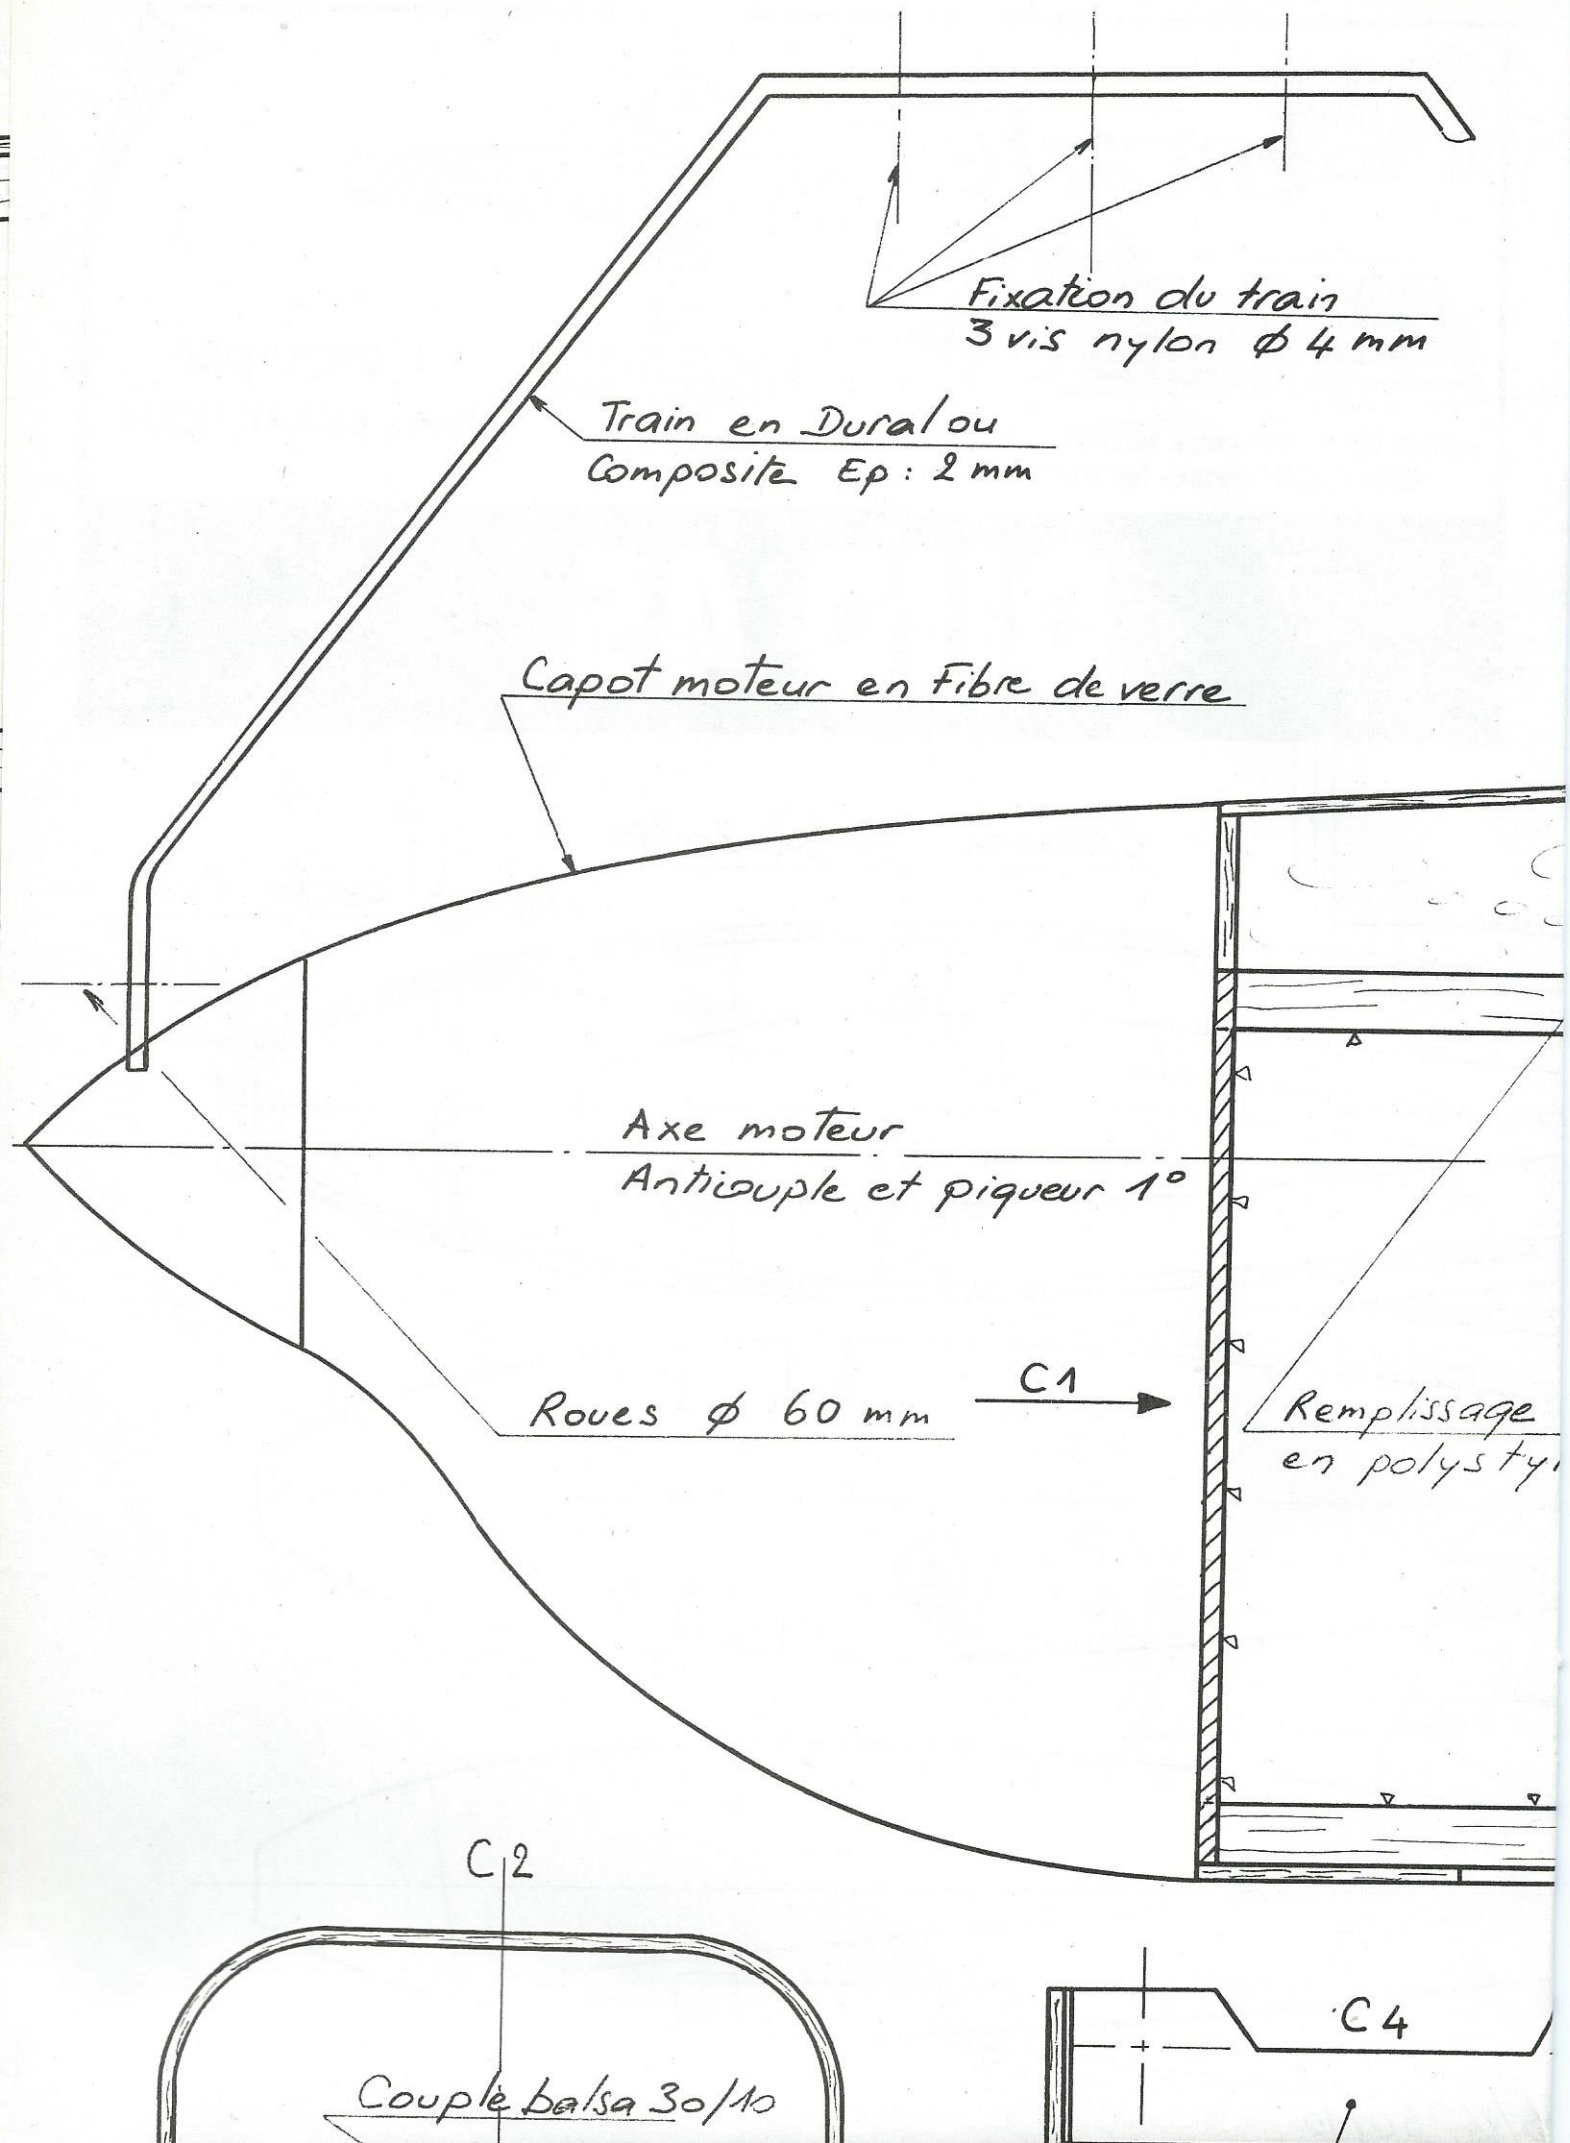 Fixation du train
3 vis nylon ϕ 4 mm
Train en Dural ou
Composite Ep : 2 mm
Capot moteur en Fibre de verre
Axe moteur
Anticouple et piqueur 1°
C1
Roues ϕ 60 mm
Remplissage
en polysty
C2
C4
Couple balsa 30/10